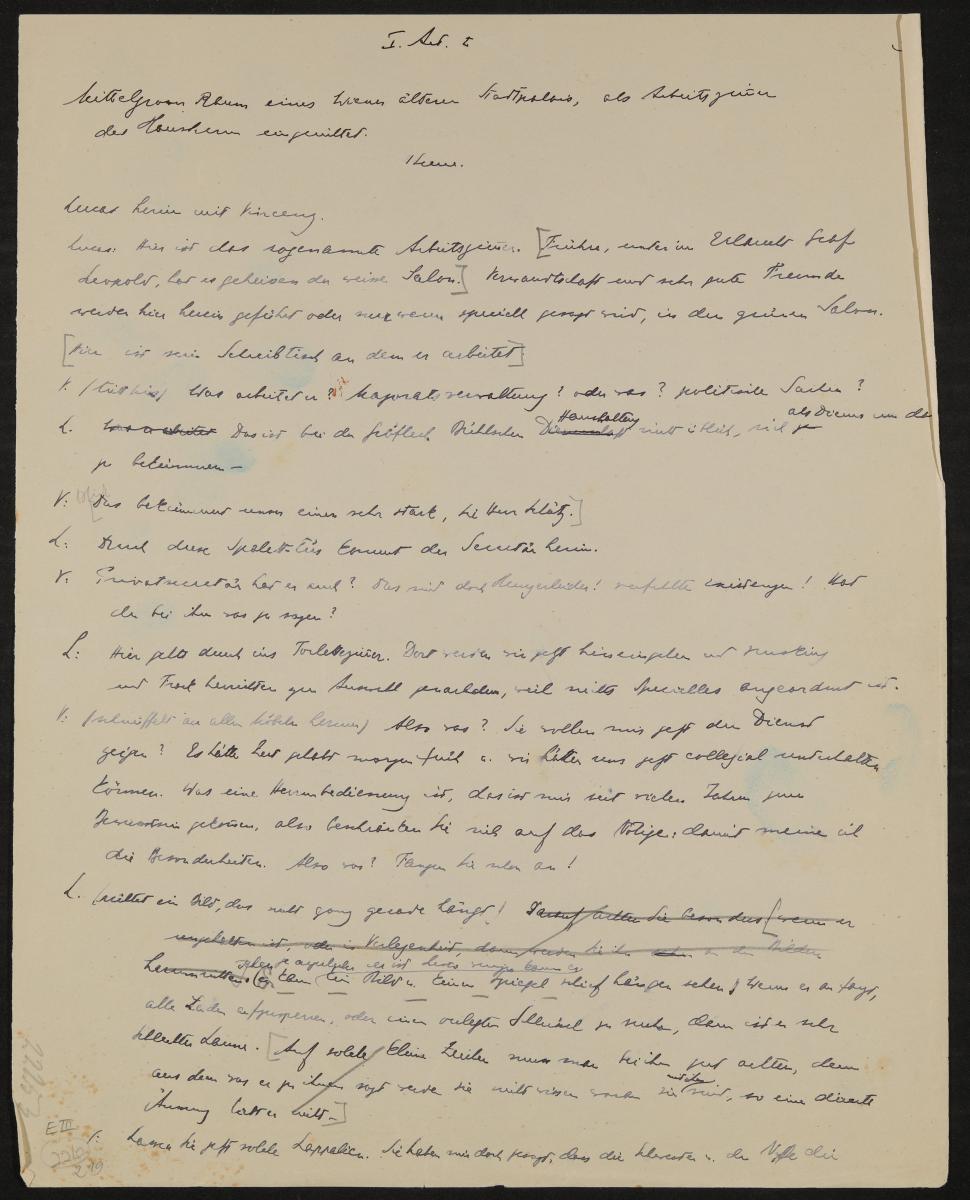 I. Act.
Mittelgrosser Raum eines Wiener älteren Stadtpalais, als Arbeitszimmer
des Hausherrn eingerichtet.
I Scene.
Lucas herein mit Vincenz.
Lucas: Hier ist das sogenannte Arbeitszimmer. [Früher, unter im Erlaucht Graf
Leopold, hat es geheissen der weisse Salon.] Verwandtschaft und sehr gute Freunde
werden hier herein geführt oder nur wenn speciell gesagt wird, in den grünen Salon.
[Hier ist sein Schreibtisch an dem er arbeitet]
V. Was arbeitet er? Majoratsverwaltung? oder was? politische Sachen?
L. Was er arbeitet Das ist bei der Gräflich Bühlschen Dienerschaft Haushaltung nicht üblich, sich als Diener um das
zu bekümmern –
V: [Das bekümmert unser einen sehr stark, Sie Herr Schätz.]
L: Durch diese Spalett-Tür kommt der Secretär herein.
V: Privatsecretär hat er auch? Das sind doch Hungerleider! verfehlte Existenzen! Hat
der bei ihm was zu sagen?
L: Hier gehts durch ins Toilettezimmer. Dort werden wir jetzt hineingehen und Smoking
und Frack herrichten zur Auswahl, weil nichts Specielles angeordnet ist.
V: (schnüffelt an allen Möbeln herum) Also was? Sie wollen mir jetzt den Dienst
zeigen? Es hätte Zeit gehabt morgen früh u. wir hätten uns jetzt collegial unterhalten
können. Was eine Herrenbedienung ist, das ist mir seit vielen Jahren zum
Bewusstsein gekommen, also beschränken Sie sich auf das Nötige: damit meine ich
die Besonderheiten. Also was? Fangen Sie schon an!
L. (richtet ein Bild, das nicht ganz gerade hängt) Darauf achten Sie besonders [wenn er
ungehalten ist, oder in Verlegenheit, dann an den Bildern
herumrichten. Er kann ein Bild u. einen Spiegel schief hängen sehen! Wenn er anfangt,
alle Laden aufzusperren, oder einen verlegten Schlüssel zu suchen, dann ist er sehr
schlechter Laune. [Auf solche kleine Zeichen muss man bei ihm gut achten, denn
aus dem was er zu ihnen sagt werden Sie nicht wissen woran Sie mit ihm sind, so eine directe
Äusserung hat er nicht –]
V: Lassen Sie jetzt solche Lappalien. Sie haben mir doch gesagt, dass die Schwester u. der Neffe die
E III